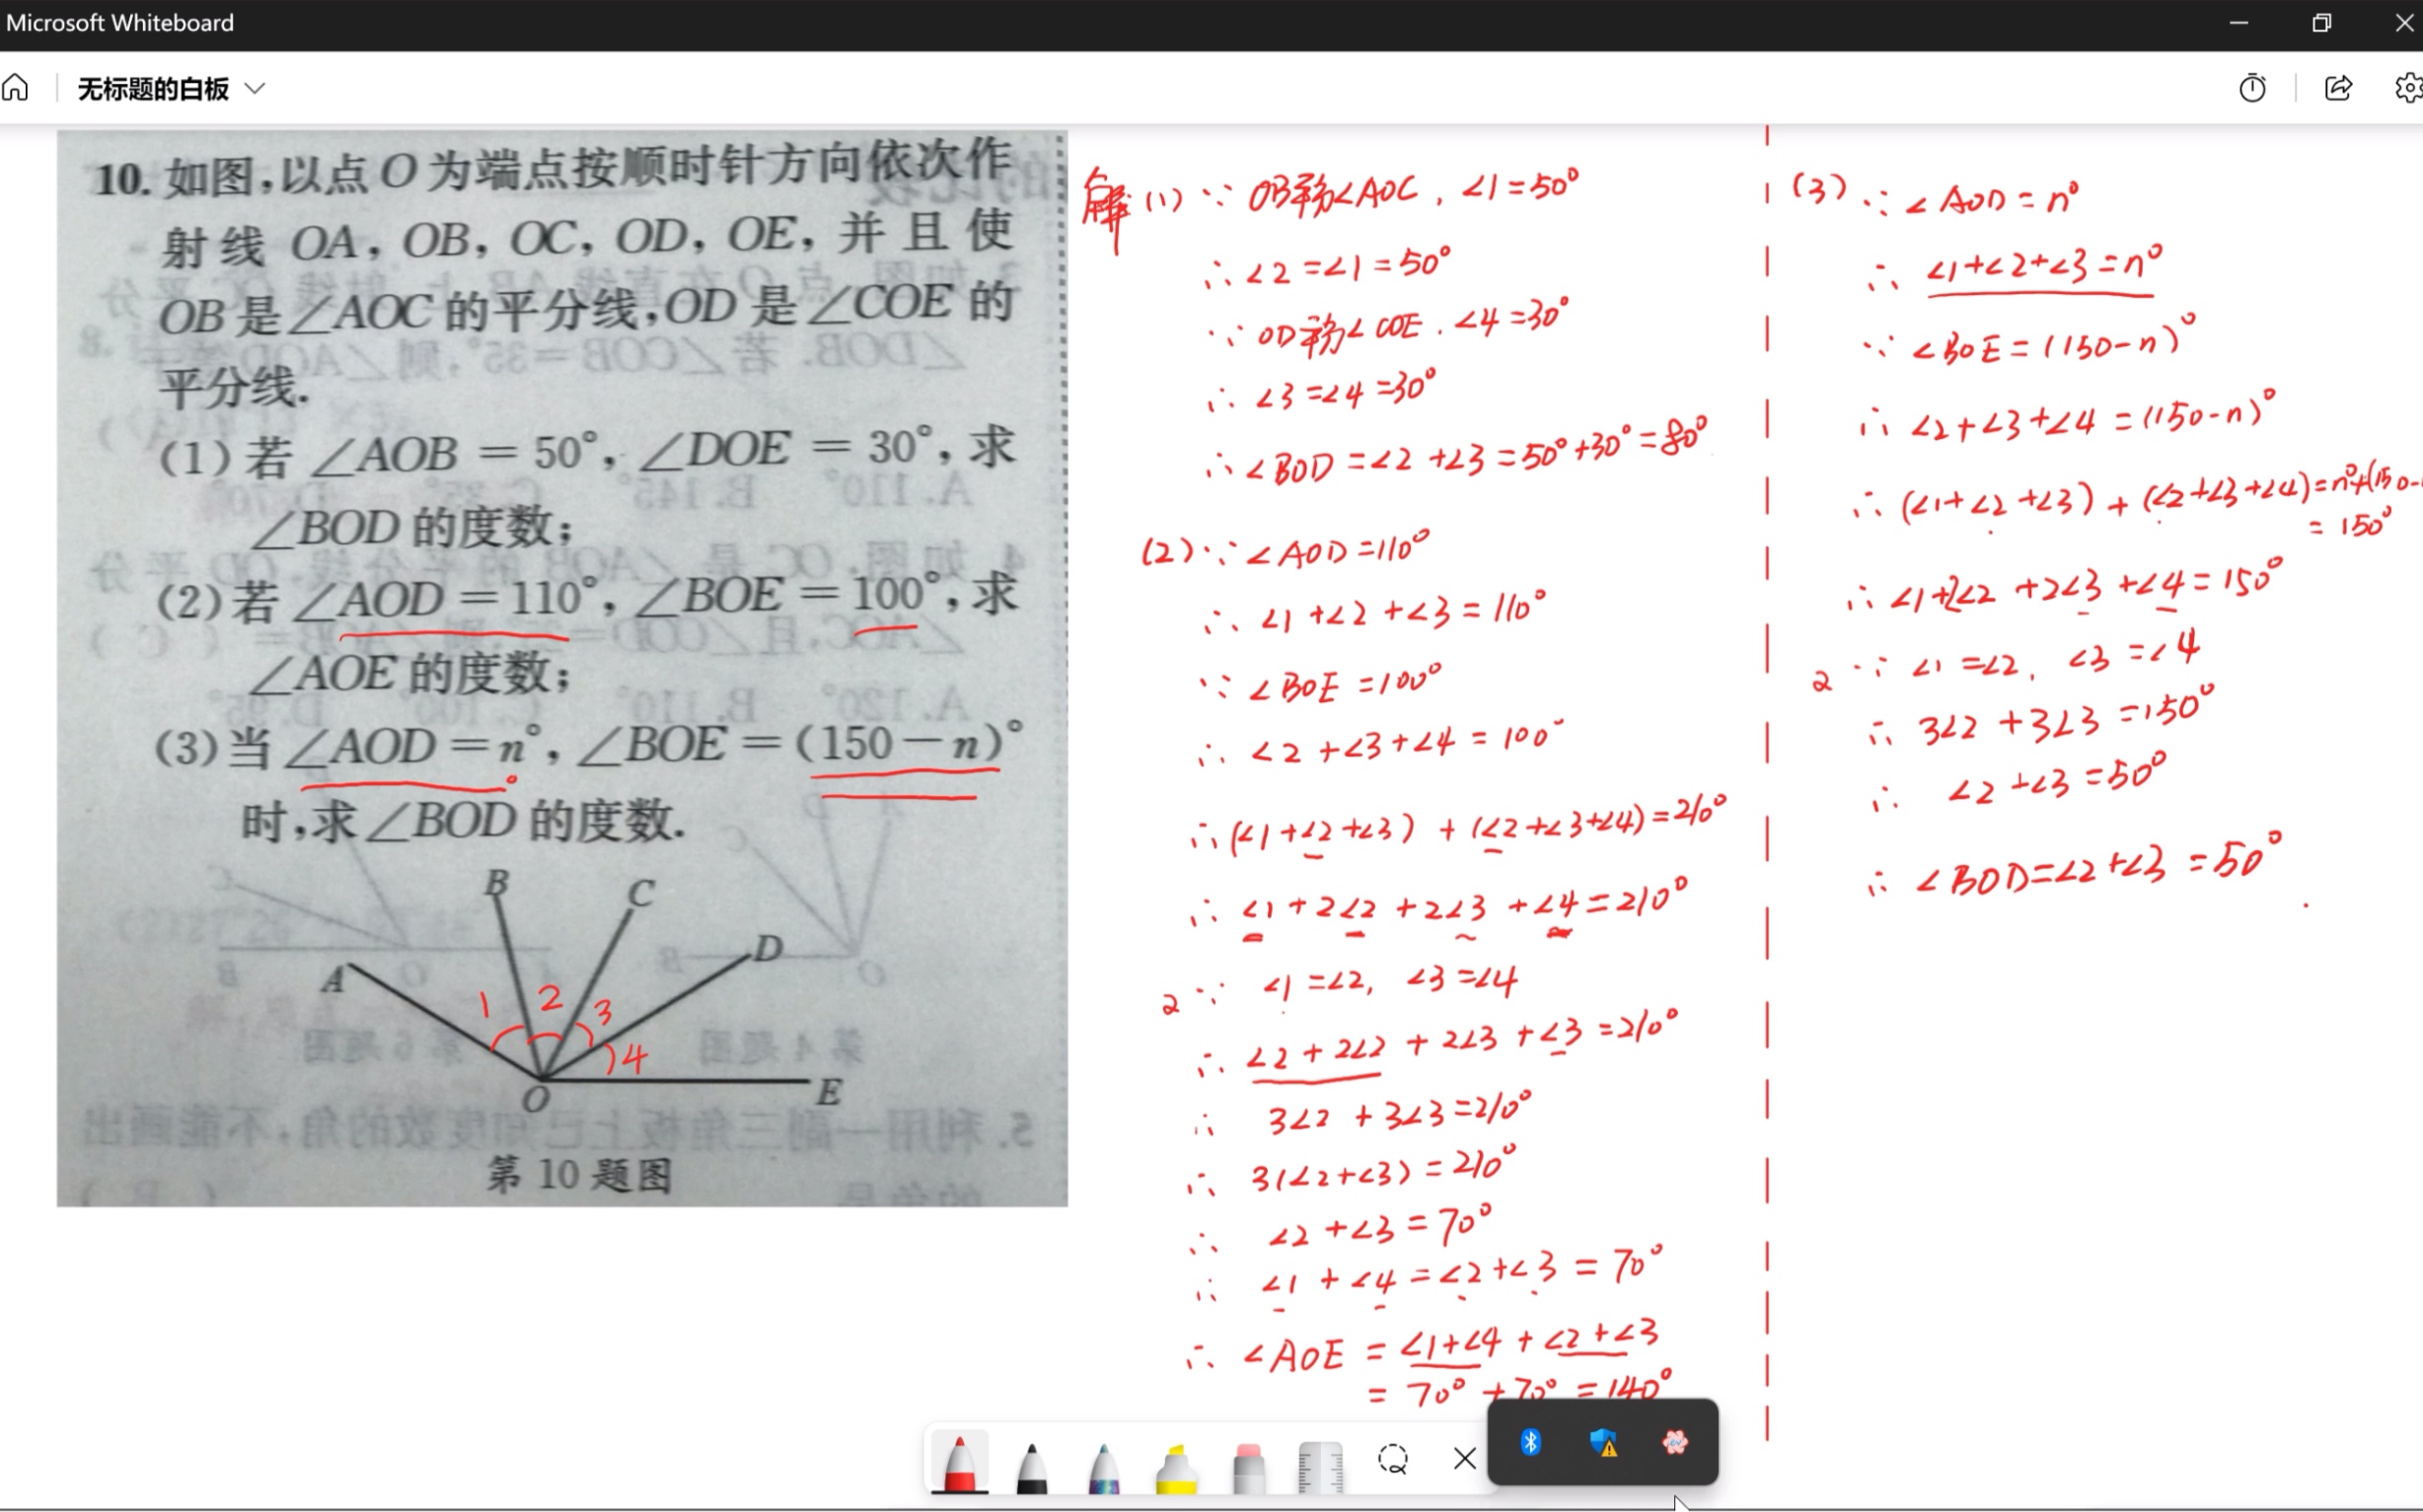 Microsoft Whiteboard
无标题的白板
10. 如图,以点O为端点按顺时针方向依次作
射线 OA, OB, OC, OD, OE, 并且使
OB是∠AOC的平分线,OD是∠COE的
平分线.
(1)若∠AOB=50°,∠DOE=30°,求
∠BOD的度数;
(2)若∠AOD=110°,∠BOE=100°,求
∠AOE的度数;
(3)当∠AOD=n°,∠BOE=(150-n)°
时,求∠BOD的度数.
B
C
D
A
1
2
3
4
O
E
第10题图
解(1)∵ OB平分∠AOC,∠1=50°
∴∠2=∠1=50°
∵ OD平分∠COE.∠4=30°
∴∠3=∠4=30°
∴∠BOD=∠2+∠3=50°+30°=80°
(2)∵∠AOD=110°
∴∠1+∠2+∠3=110°
∵∠BOE=100°
∴∠2+∠3+∠4=100°
∴(∠1+∠2+∠3)+(∠2+∠3+∠4)=210°
∴∠1+2∠2+2∠3+∠4=210°
又∵∠1=∠2,∠3=∠4
∴∠2+2∠2+2∠3+∠3=210°
∴3∠2+3∠3=210°
∴3(∠2+∠3)=210°
∴∠2+∠3=70°
∴∠1+∠4=∠2+∠3=70°
∴∠AOE=∠1+∠4+∠2+∠3
=70°+70°=140°
(3)∵∠AOD=n°
∴∠1+∠2+∠3=n°
∵∠BOE=(150-n)°
∴∠2+∠3+∠4=(150-n)°
∴(∠1+∠2+∠3)+(∠2+∠3+∠4)=n°+(150-
=150°
∴∠1+2∠2+2∠3+∠4=150°
又∵∠1=∠2,∠3=∠4
∴3∠2+3∠3=150°
∴∠2+∠3=50°
∴∠BOD=∠2+∠3=50°